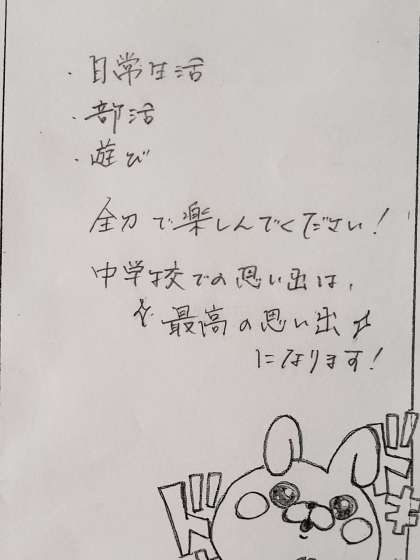 ・日常生活
・部活
・遊び
全力で楽しんでください!
中学校での思い出は、
最高の思い出
になります!